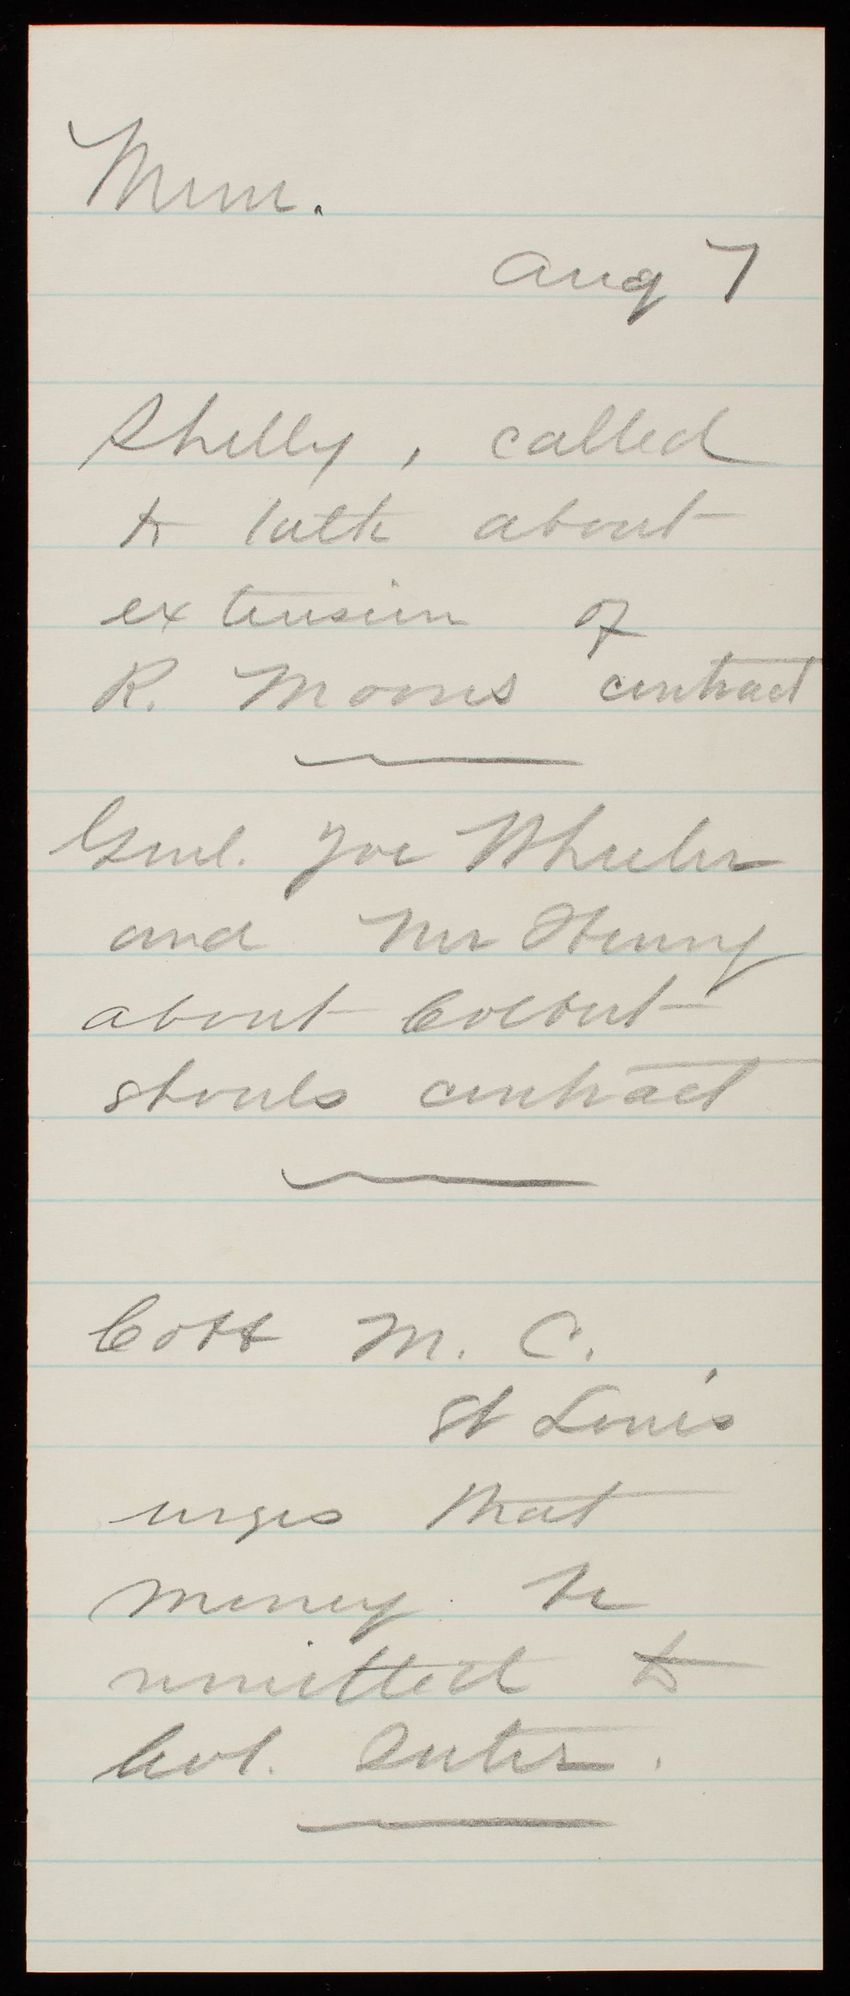 Mem.
Aug 7
Shelly, called
to talk about
extension of
R. Moores contract
Genl. Joe Wheeler
and Mr Henry
about Colbert
shoals contract
Cobb M. C.
St Louis
urges that
money be
remitted to
Col. Suter.